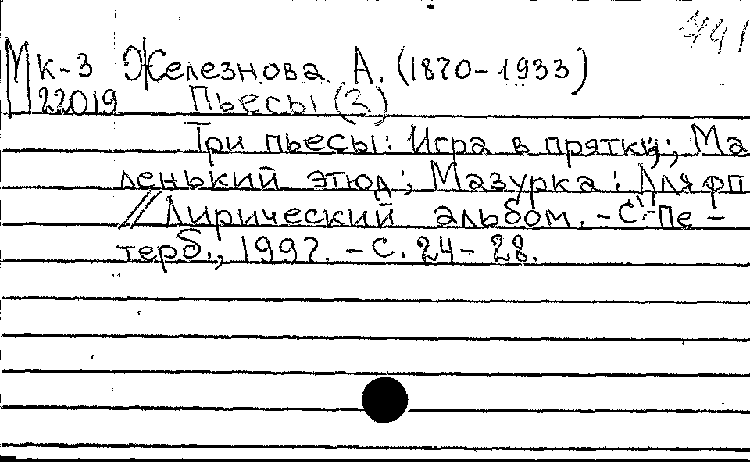 441
Мк-3 Железнова А. (1870-1933)
22019 Пьесы (3)
Три пьесы: Игра в прятки; Ма
ленький этюд; Мазурка: Для фп
// Лирический альбом. - С-Пе-
терб., 1997. - С. 24-28.